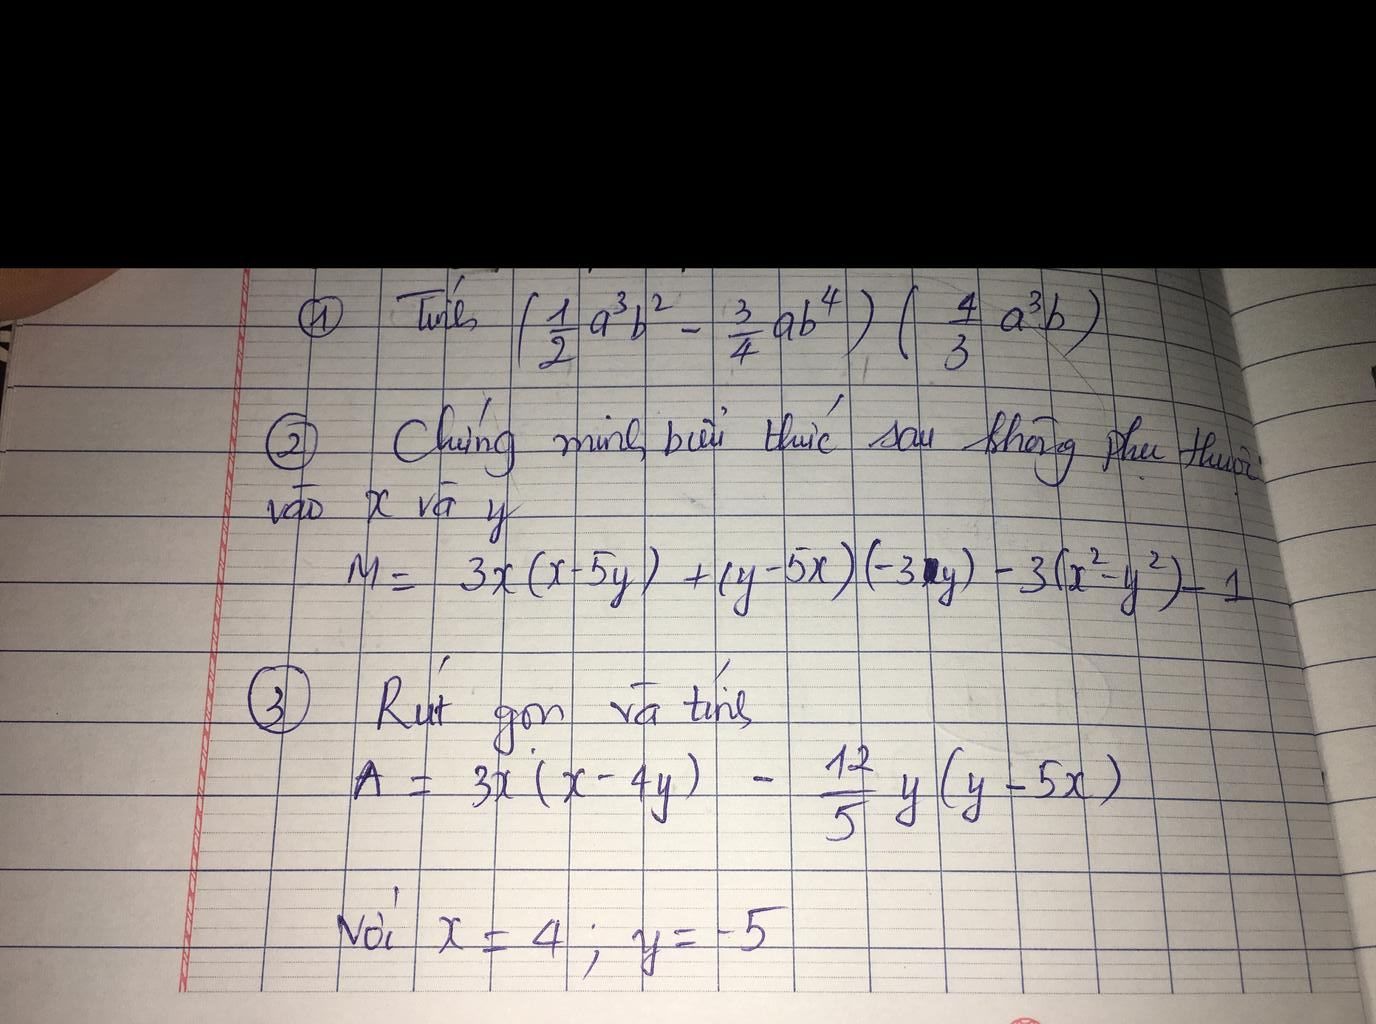 ① Tính (1/2 a³b² - 3/4 ab⁴) (4/3 a³b)
② Chứng minh biểu thức sau không phụ thuộc
vào x và y
M = 3x(x-5y) + (y-5x)(-3y) - 3(x²-y²) - 1
③ Rút gọn và tính
A = 3x(x-4y) - 12/5 y(y-5x)
Với x = 4; y = -5